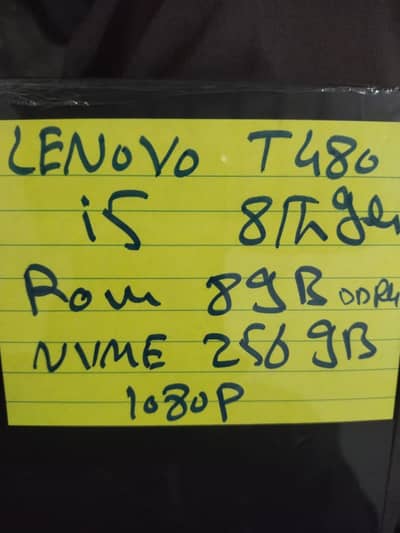 LENOVO T480
i5 8Th gen
Rom 8gB DDR4
NVME 256gB
1080P